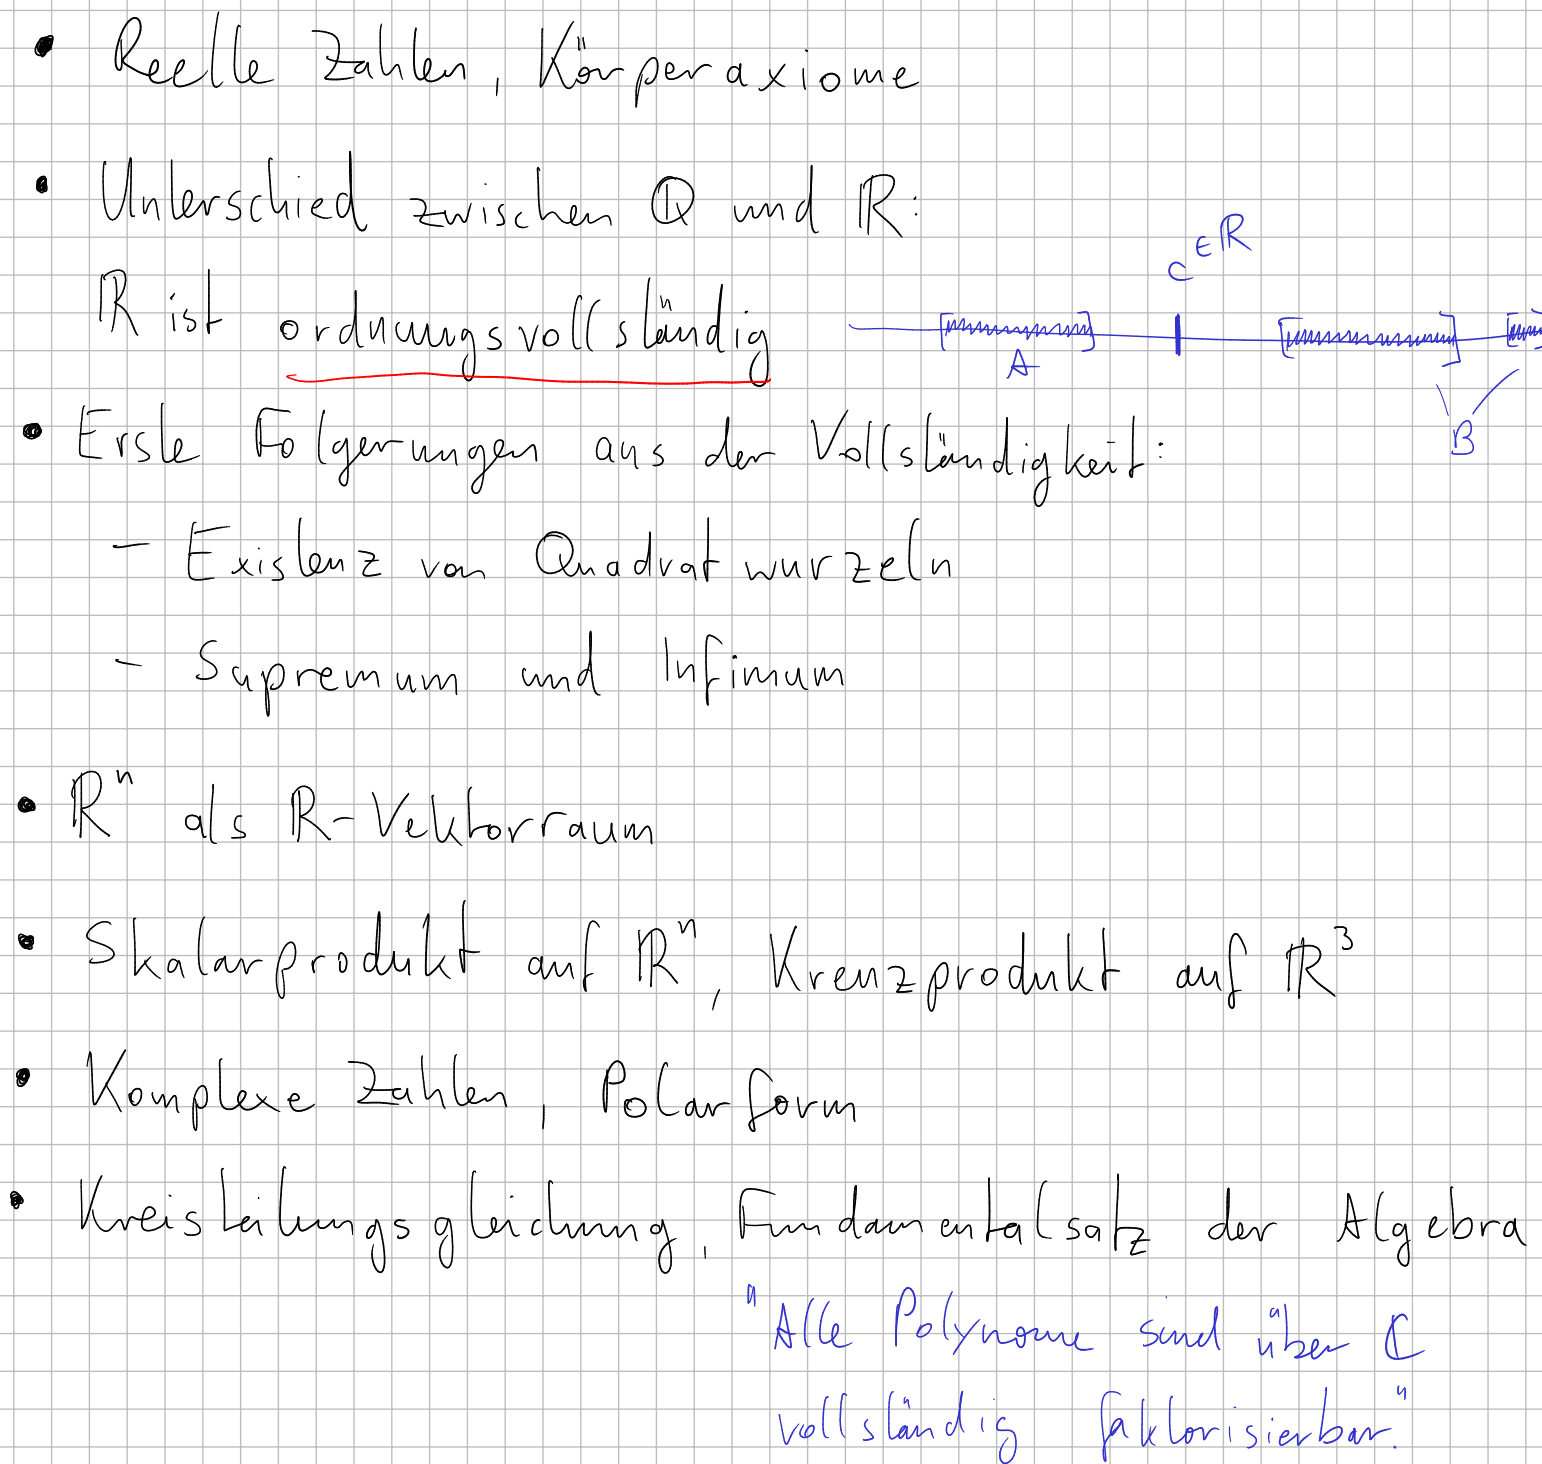 • Reelle Zahlen, Körperaxiome
• Unterschied zwischen ℚ und ℝ:
ℝ ist ordnungsvollständig
c ∈ ℝ
A
B
• Erste Folgerungen aus der Vollständigkeit:
- Existenz von Quadratwurzeln
- Supremum und Infimum
• ℝⁿ als ℝ-Vektorraum
• Skalarprodukt auf ℝⁿ, Kreuzprodukt auf ℝ³
• Komplexe Zahlen, Polarform
• Kreisteilungsgleichung, Fundamentalsatz der Algebra
"Alle Polynome sind über ℂ
vollständig faktorisierbar."